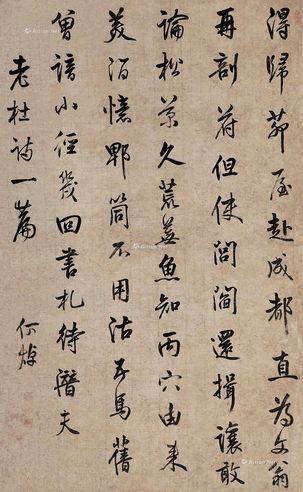 得歸茅屋赴成都直為文翁
再剖符但使閭閻還揖讓敢
論松久荒蕪魚知丙穴由来
美酒憶郫筒不用沽五馬舊
曾諳小徑幾回書札待潛夫
老杜詩一篇
何焯